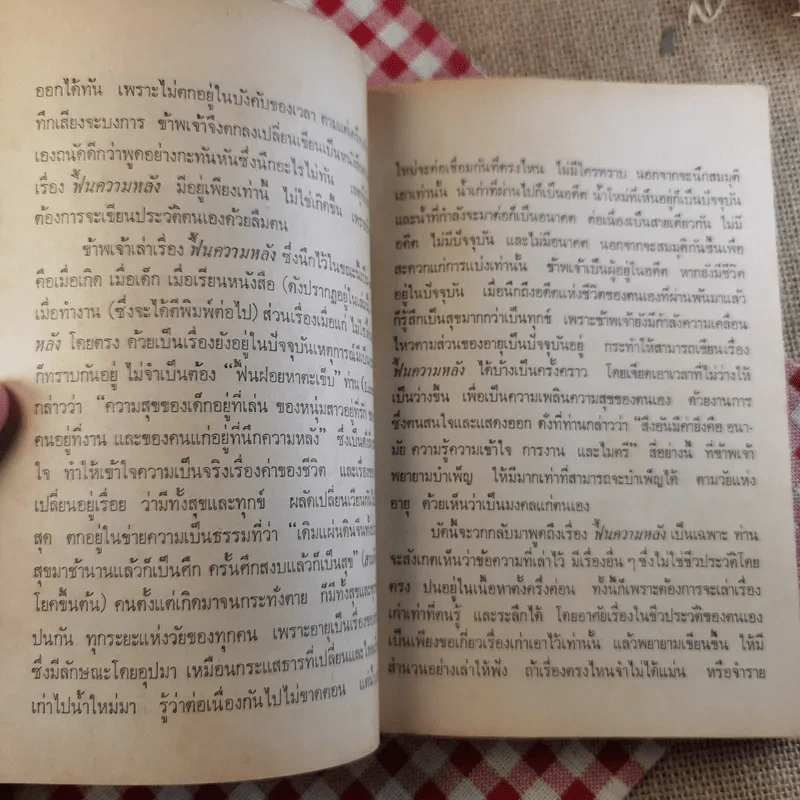 ออกได้ทัน เพราะไม่ตกอยู่ในบังคับของเวลา ตามแต่เครื่อง
ทึกเสียงจะบงการ ข้าพเจ้าจึงตกลงเปลี่ยนเขียนเป็นหนังสือ
เองถนัดดีกว่าพูดอย่างกะทันหันซึ่งนึกอะไรไม่ทัน
เรื่อง ฟื้นความหลัง มีอยู่เพียงเท่านี้ ไม่ใช่เกิดขึ้น เพราะ
ต้องการจะเขียนประวัติตนเองด้วยลืมตน
ข้าพเจ้าเล่าเรื่อง ฟื้นความหลัง ซึ่งนึกไว้ในขณะนั้น
คือเมื่อเกิด เมื่อเด็ก เมื่อเรียนหนังสือ (ดังปรากฏอยู่ในเล่ม
เมื่อทำงาน (ซึ่งจะได้ตีพิมพ์ต่อไป) ส่วนเรื่องเมื่อแก่ ไม่ใช่
หลัง โดยตรง ด้วยเป็นเรื่องยังอยู่ในปัจจุบันเหตุการณ์
ก็ทราบกันอยู่ ไม่จำเป็นต้อง “ฟื้นฝอยหาตะเข็บ” ท่าน
กล่าวว่า “ความสุขของเด็กอยู่ที่เล่น ของหนุ่มสาวอยู่ที่รัก
คนอยู่ที่งาน และของคนแก่อยู่ที่นึกความหลัง” ซึ่งเป็น
ใจ ทำให้เข้าใจความเป็นจริงเรื่องค่าของชีวิต และเรื่อง
เปลี่ยนอยู่เรื่อย ว่ามีทั้งสุขและทุกข์ ผลัดเปลี่ยนเวียนกันไป
สุด ตกอยู่ในข่ายความเป็นธรรมที่ว่า “เดิมแผ่นดินจีน
สุขมาช้านานแล้วก็เป็นศึก ครั้นศึกสงบแล้วก็เป็นสุข”
โยคขึ้นต้น) คนตั้งแต่เกิดมาจนกระทั่งตาย ก็มีทั้งสุขและ
ปนกัน ทุกระยะแห่งวัยของทุกคน เพราะอายุเป็นเรื่องของ
ซึ่งมีลักษณะโดยอุปมา เหมือนกระแสธารที่เปลี่ยนและไหล
เก่าไปน้ำใหม่มา รู้ว่าต่อเนื่องกันไปไม่ขาดตอน
ใหม่จะต่อเชื่อมกันที่ตรงไหน ไม่มีใครทราบ นอกจากจะนึกสมมุติ
เอาเท่านั้น น้ำเก่าที่ผ่านไปก็เป็นอดีต น้ำใหม่ที่เห็นอยู่ก็เป็นปัจจุบัน
และน้ำที่กำลังจะมาต่อก็เป็นอนาคต ต่อเนื่องเป็นสายเดียวกัน ไม่มี
อดีต ไม่มีปัจจุบัน และไม่มีอนาคต นอกจากจะสมมุติกันขึ้นเพื่อ
สะดวกแก่การแบ่งเท่านั้น ข้าพเจ้าเป็นผู้อยู่ในอดีต หากยังมีชีวิต
อยู่ในปัจจุบัน เมื่อนึกถึงอดีตแห่งชีวิตของตนเองที่ผ่านพ้นมาแล้ว
ก็รู้สึกเป็นสุขมากกว่าเป็นทุกข์ เพราะข้าพเจ้ายังมีกำลังความเคลื่อน
ไหวตามส่วนของอายุเป็นปัจจุบันอยู่ กระทำให้สามารถเขียนเรื่อง
ฟื้นความหลัง ได้บ้างเป็นครั้งคราว โดยเจียดเอาเวลาที่ไม่ว่างให้
เป็นว่างขึ้น เพื่อเป็นความเพลินความสุขของตนเอง ด้วยงานการ
ซึ่งตนสนใจและแสดงออก ดังที่ท่านกล่าวว่า “สิ่งอันมีค่ายิ่งคือ อนา-
มัย ความรู้ความเข้าใจ การงาน และไมตรี” สี่อย่างนี้ ที่ข้าพเจ้า
พยายามบำเพ็ญ ให้มีมากเท่าที่สามารถจะบำเพ็ญได้ ตามวัยแห่ง
อายุ ด้วยเห็นว่าเป็นมงคลแก่ตนเอง
บัดนี้จะวกกลับมาพูดถึงเรื่อง ฟื้นความหลัง เป็นเฉพาะ ท่าน
จะสังเกตเห็นว่าข้อความที่เล่าไว้ มีเรื่องอื่น ๆ ซึ่งไม่ใช่ชีวประวัติโดย
ตรง ปนอยู่ในเนื้อหาตั้งครึ่งค่อน ทั้งนี้ก็เพราะต้องการจะเล่าเรื่อง
เก่าเท่าที่ตนรู้ และระลึกได้ โดยอาศัยเรื่องในชีวประวัติของตนเอง
เป็นเพียงขอเกี่ยวเรื่องเก่าเอาไว้เท่านั้น แล้วพยายามเขียนขึ้น ให้มี
สำนวนอย่างเล่าให้ฟัง ถ้าเรื่องตรงไหนจำไม่ได้แม่น หรือจำราย